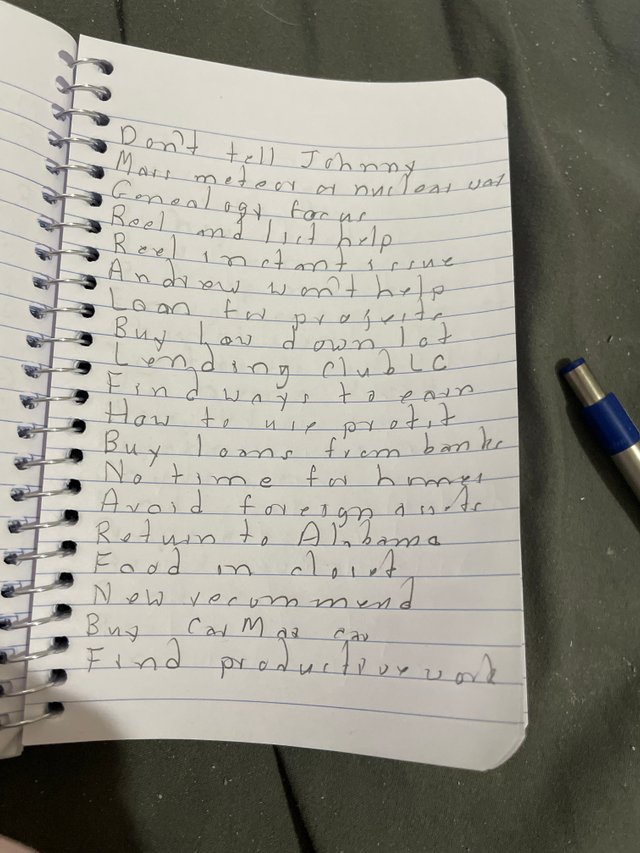 Don't tell Johnny
Mass meteor or nuclear war
Genealogy focus
Reel and list help
Reel instant issue
Andrew won't help
Loan for projects
Buy low down lot
Lending Club LC
Find ways to earn
How to use profit
Buy loans from banks
No time for homes
Avoid foreign assets
Return to Alabama
Food in closet
New recommend
Buy CarMax car
Find productive work